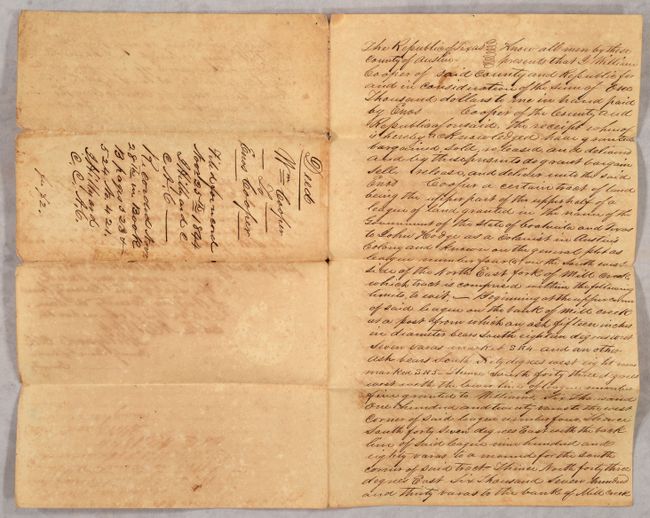 Deed
Wm Cooper
To
Enos Cooper
Filed for record
C. A. C.
17
28th in Book
B pages 23 &
524 to 421.
C. C. A. C.
The Republic of Texas Know all men by these
County of Austin presents that I William
Cooper of said County and Republic for
and in consideration of the sum of
Thousand dollars to me in hand paid
by Enos Cooper of the County and
Republic aforesaid, the receipt whereof
is hereby acknowledged have granted
bargained sold, released and delivered
and by these presents do grant bargain
sell, release, and deliver unto the said
Enos Cooper a certain tract of land
being the upper part of the upper half of a
league of land granted in the name of the
Government of the State of Coahuila and Texas
to John as a Colonist in Austin's
Colony and known on the general plot as
league number four on the South west
side of the North East fork of Mill Creek
which tract is comprised within the following
limits, to wit, — Beginning at the upper corner
of said league on the bank of Mill creek
at a post from which an ash fifteen inches
in diameter bears South eighteen degrees west
seven varas marked and an other
ash bears South degrees west eight varas
marked Thence South forty three degrees
west with the lower line of league number
five granted to Williams Six thousand
One hundred and twenty varas to the west
corner of said league number four Thence
South forty seven degrees East with the back
line of said league nine hundred and
eighty varas to a mound for the south
corner of said tract Thence North forty three
degrees East Six Thousand Seven hundred
and thirty varas to the bank of Mill creek